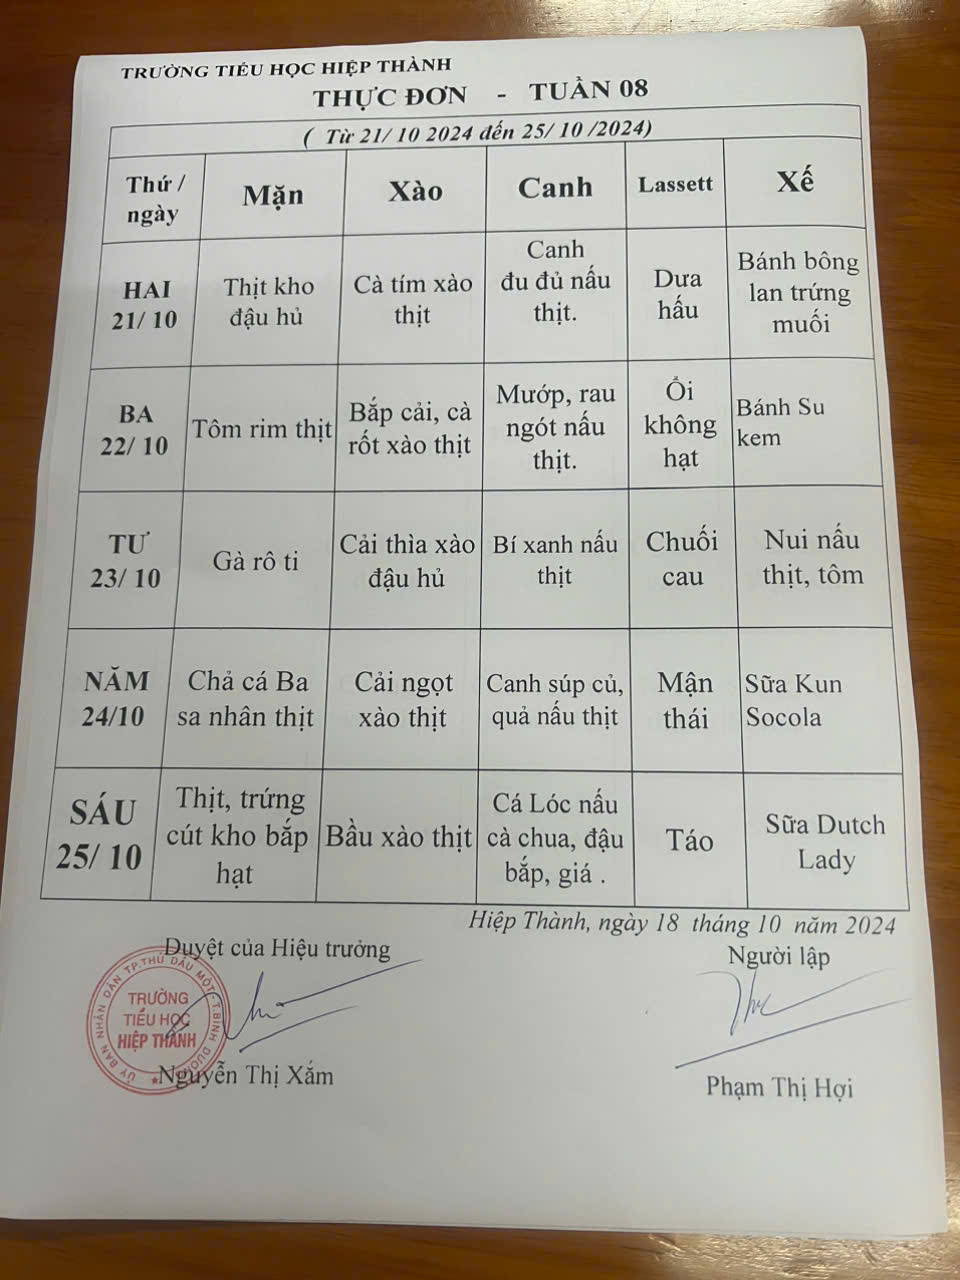 TRƯỜNG TIỂU HỌC HIỆP THÀNH
THỰC ĐƠN - TUẦN 08
( Từ 21/ 10 2024 đến 25/ 10 /2024)
Thứ /
ngày
Mặn
Xào
Canh
Lassett
Xế
HAI
21/ 10
Thịt kho
đậu hủ
Cà tím xào
thịt
Canh
đu đủ nấu
thịt.
Dưa
hấu
Bánh bông
lan trứng
muối
BA
22/ 10
Tôm rim thịt
Bắp cải, cà
rốt xào thịt
Mướp, rau
ngót nấu
thịt.
Ổi
không
hạt
Bánh Su
kem
TƯ
23/ 10
Gà rô ti
Cải thìa xào
đậu hủ
Bí xanh nấu
thịt
Chuối
cau
Nui nấu
thịt, tôm
NĂM
24/10
Chả cá Ba
sa nhân thịt
Cải ngọt
xào thịt
Canh súp củ,
quả nấu thịt
Mận
thái
Sữa Kun
Socola
SÁU
25/ 10
Thịt, trứng
cút kho bắp
hạt
Bầu xào thịt
Cá Lóc nấu
cà chua, đậu
bắp, giá .
Táo
Sữa Dutch
Lady
Hiệp Thành, ngày 18 tháng 10 năm 2024
Duyệt của Hiệu trưởng
Người lập
ỦY BAN NHÂN DÂN TP.THỦ DẦU MỘT - T.BÌNH DƯƠNG
TRƯỜNG
TIỂU HỌC
HIỆP THÀNH
Nguyễn Thị Xắm
Phạm Thị Hợi